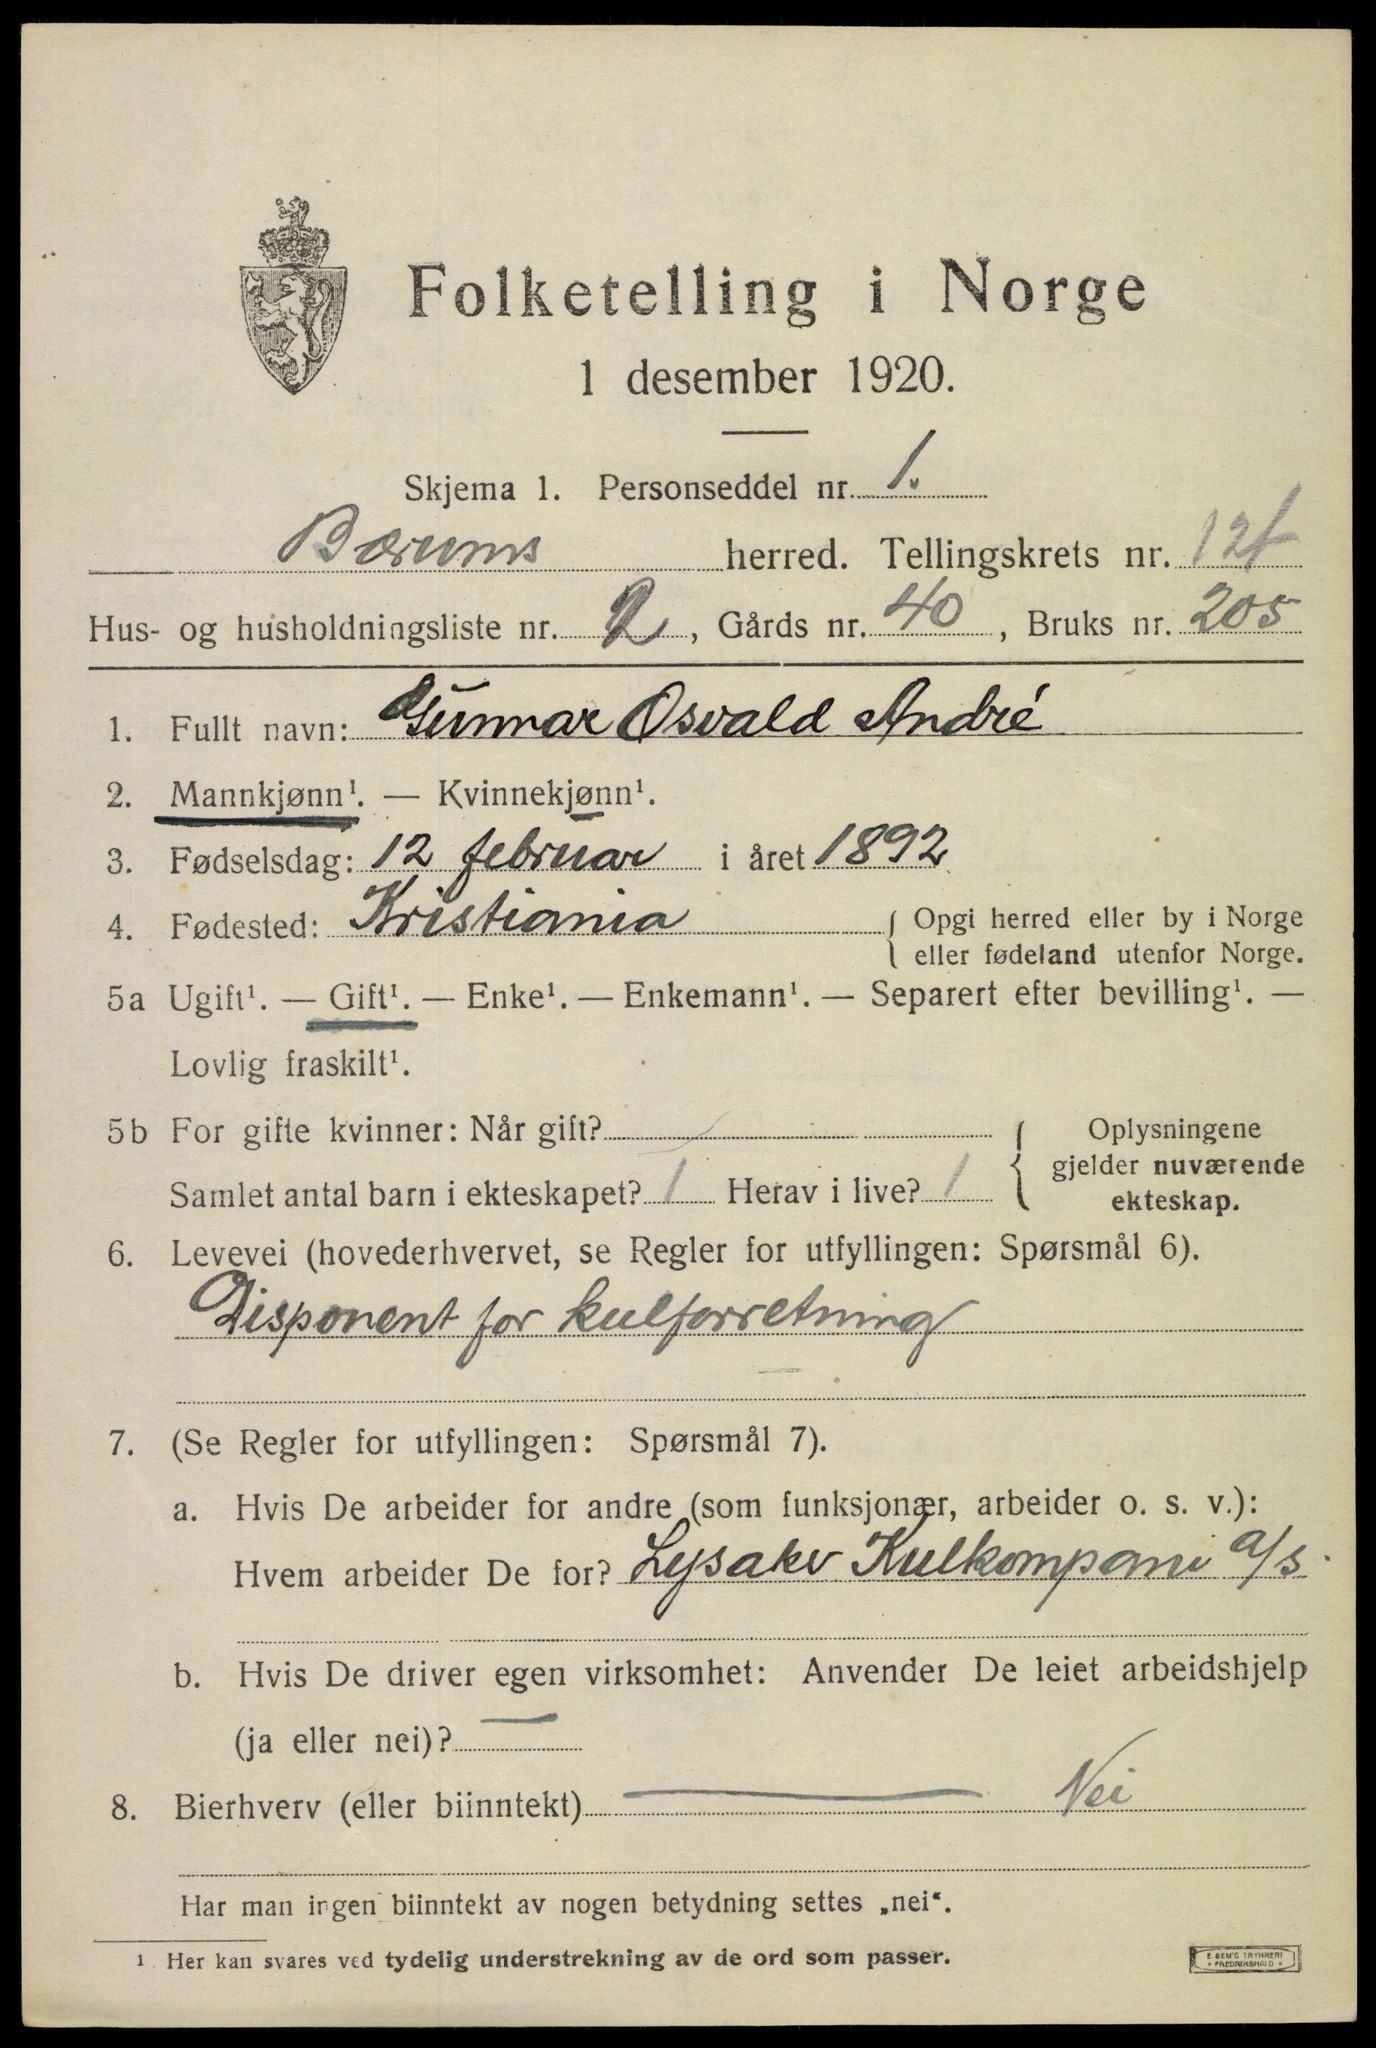 Folketelling i Norge
1 desember 1920.
Skjema 1. Personseddel nr. 1.
Bærums herred. Tellingskrets nr. 12f
Hus- og husholdningsliste nr. 2, Gårds nr. 40, Bruks nr. 205
1. Fullt navn: Gunnar Osvald André
2. Mannkjønn¹. — Kvinnekjønn¹.
3. Fødselsdag: 12 februar i året 1892
4. Fødested: Kristiania { Opgi herred eller by i Norge
eller fødeland utenfor Norge.
5a Ugift¹. — Gift¹. — Enke¹. — Enkemann¹. — Separert efter bevilling¹. —
Lovlig fraskilt¹.
5b For gifte kvinner: Når gift? { Oplysningene
gjelder nuværende
Samlet antal barn i ekteskapet? 1 Herav i live? 1 ekteskap.
6. Levevei (hovederhvervet, se Regler for utfyllingen: Spørsmål 6).
Disponent for kulforretning
7. (Se Regler for utfyllingen: Spørsmål 7).
a. Hvis De arbeider for andre (som funksjonær, arbeider o. s. v.):
Hvem arbeider De for? Lysaker Kulkompani a/s.
b. Hvis De driver egen virksomhet: Anvender De leiet arbeidshjelp
(ja eller nei)? —
8. Bierhverv (eller biinntekt) — Nei
Har man ingen biinntekt av nogen betydning settes „nei“.
¹ Her kan svares ved tydelig understrekning av de ord som passer.
E. SEM'S TRYKKERI
• FREDRIKSHALD •